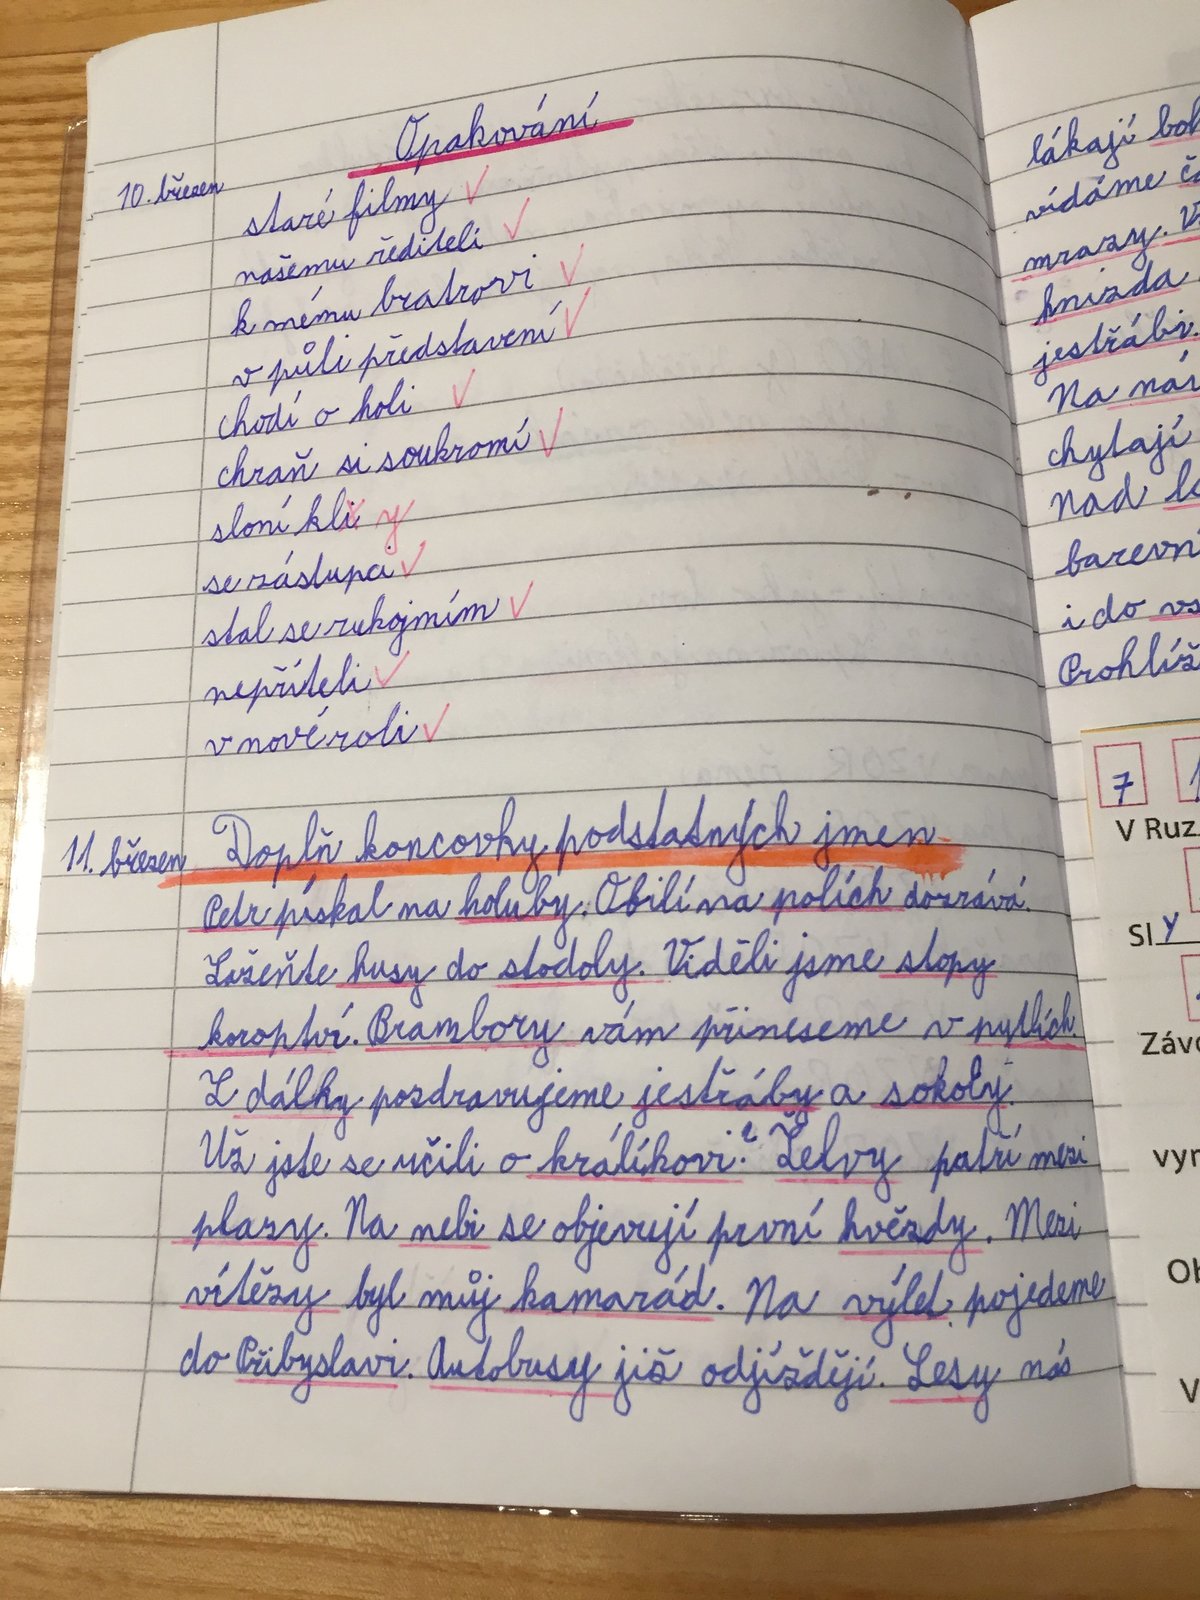 Opakování
10. březen
staré filmy ✓
našemu řediteli ✓
k mému bratrovi ✓
v půli představení ✓
chodí o holi ✓
chraň si soukromí ✓
sloní kli y
se zástupci ✓
stal se rukojmím ✓
nepříteli ✓
v nové roli ✓
11. březen Doplň koncovky podstatných jmen
Petr pískal na holuby. Obilí na polích dozrává.
Složeňte husy do stodoly. Viděli jsme stopy
koroptví. Brambory vám přineseme v pytlích.
Z dálky pozdravujeme jestřáby a sokoly.
Už jste se učili o králíkovi? Želvy patří mezi
plazy. Na nebi se objevují první hvězdy. Mezi
vítězy byl můj kamarád. Na výlet pojedeme
do Přibyslavi. Autobusy již odjíždějí. Lesy nás
lákají
vídáme
mrazy.
hnizda
jestřábi.
Na
chytají
Nad
i do
7
V Ruz
Sl y
Závo
vyr
V